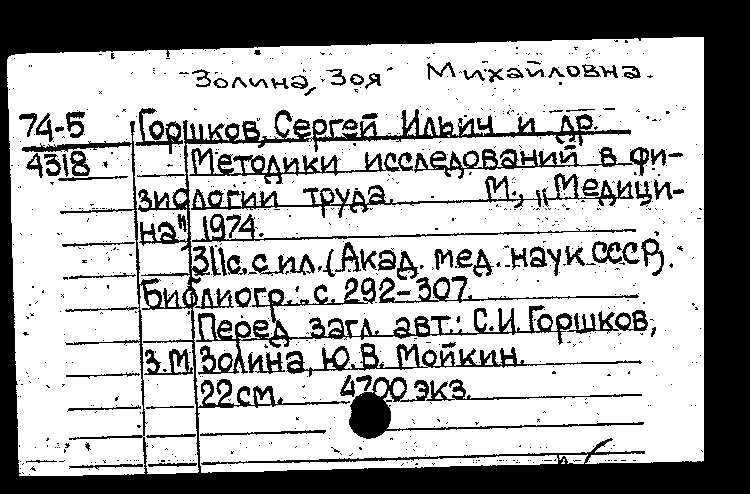 Золина, Зоя Михайловна.
74-5 Горшков, Сергей Ильич и др.
4318 Методики исследований в фи-
зиологии труда. М., „Медици-
на", 1974.
311с. с ил. (Акад. мед. наук СССР).
Библиогр.: с. 292-307.
Перед загл. авт.: С.И. Горшков,
З.М. Золина, Ю.В. Мойкин.
22см. 4700 экз.